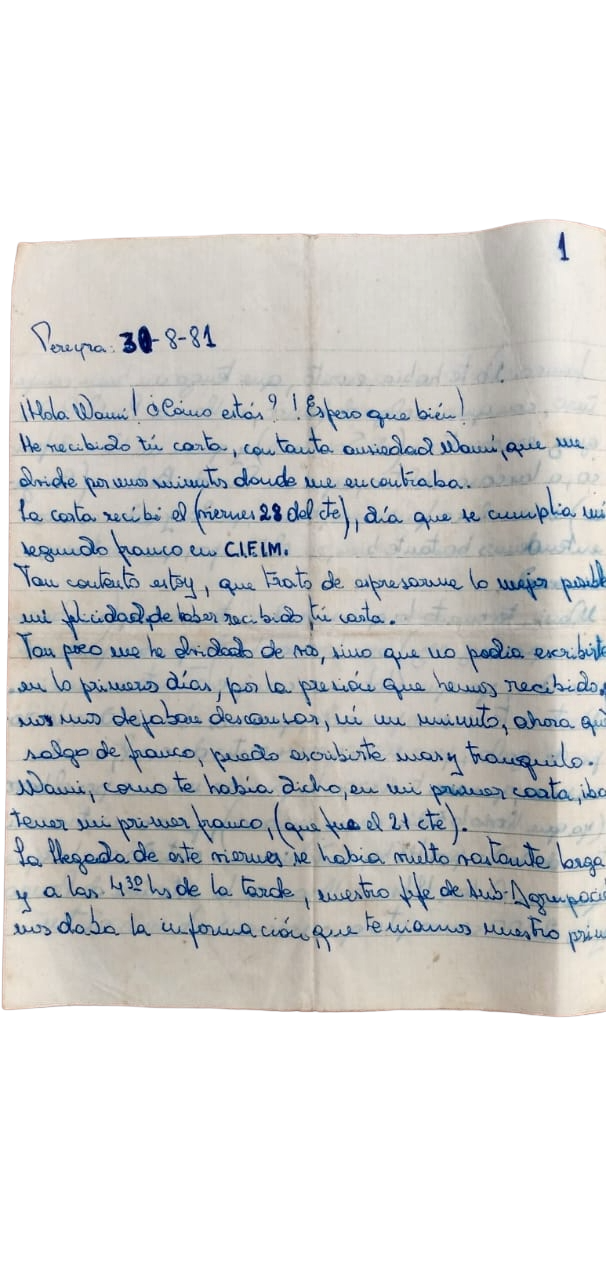 1
Pereyra: 30-8-81
¡Hola Wami! ¿Cómo estás? ! Espero que bién!
He recibido tú carta, con tanta ansiedad Wami, que me
olvide por unos minutos donde me encontraba.
La carta recibi el (viernes 28 del cte), día que se cumplia mi
segundo franco en C.I.F.I.M.
Tan contento estoy, que trato de espresarme lo mejor posible
mi felicidad, de haber recibido, tú carta.
Tan poco me he olvidado de vos, sino que no podia escribirte
en lo primeros días, por la presión que hemos recibido,
nos dejaban descansar, ni un minuto, ahora que
salgo de franco, puedo escribirte mas y tranquilo.
Wami, como te había dicho, en mi primer carta, iba
tener mi primer franco, (que fue el 21 cte).
La llegada de este viernes se habia vuelto vastante larga
y a las 4³⁰ hs de la tarde, nuestro jefe de Sub-Agrupació
nos daba la información, que teniamos nuestro prim